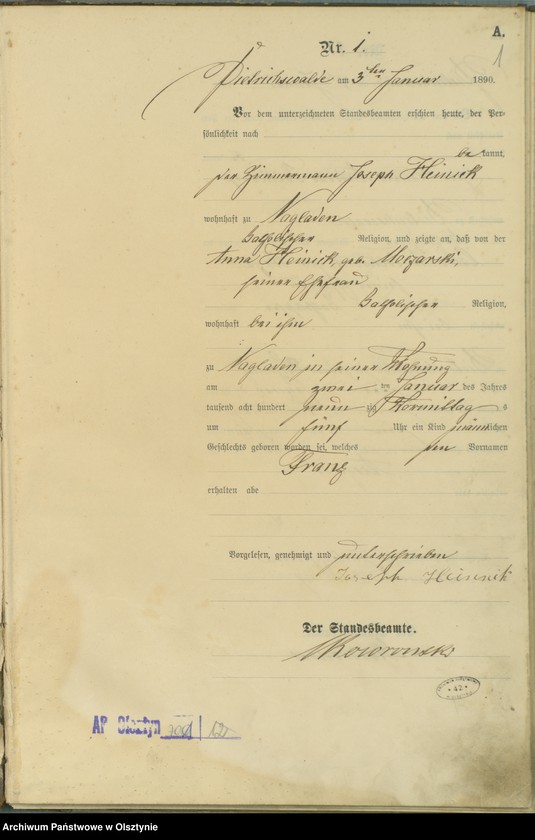 A.
1
Nr. 1.
Dietrichswalde am 3ten Januar 1890.
Vor dem unterzeichneten Standesbeamten erschien heute, der Per-
sönlichkeit nach
be kannt,
der Zimmermann Joseph Heinick
wohnhaft zu Nagladen
katholischer Religion, und zeigte an, daß von der
Anna Heinick, geb. Moczarski,
seiner Ehefrau
katholischer Religion,
wohnhaft bei ihm
zu Nagladen in seiner Wohnung
am zwei ten Januar des Jahres
tausend acht hundert neun zig Vormittag s
um fünf Uhr ein Kind männlichen
Geschlechts geboren worden sei, welches den Vornamen
Franz
erhalten habe
Vorgelesen, genehmigt und unterschrieben
Joseph Heinnik
Der Standesbeamte.
AP Olsztyn
Archiwum Państwowe w Olsztynie